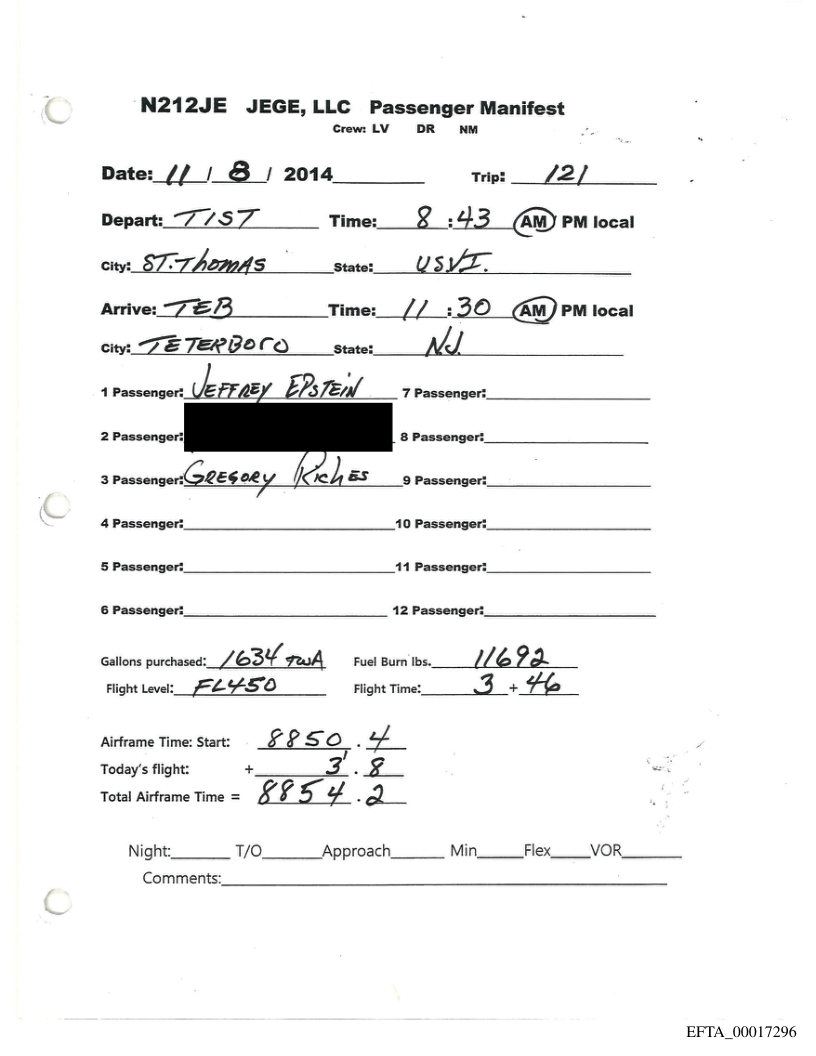 N212JE JEGE, LLC Passenger Manifest
Crew: LV DR NM
Date: 11 / 8 / 2014 Trip: 121
Depart: TIST Time: 8 :43 AM PM local
City: ST. THOMAS State: USVI.
Arrive: TEB Time: 11 :30 AM PM local
City: TETERBORO State: NJ.
1 Passenger: JEFFREY EPSTEIN 7 Passenger:
2 Passenger: 8 Passenger:
3 Passenger: GREGORY RichES 9 Passenger:
4 Passenger: 10 Passenger:
5 Passenger: 11 Passenger:
6 Passenger: 12 Passenger:
Gallons purchased: 1634 Fuel Burn lbs. 11692
Flight Level: FL450 Flight Time: 3 + 46
Airframe Time: Start: 8850 . 4
Today's flight: + 3 . 8
Total Airframe Time = 8854 . 2
Night: T/O Approach Min Flex VOR
Comments:
EFTA_00017296